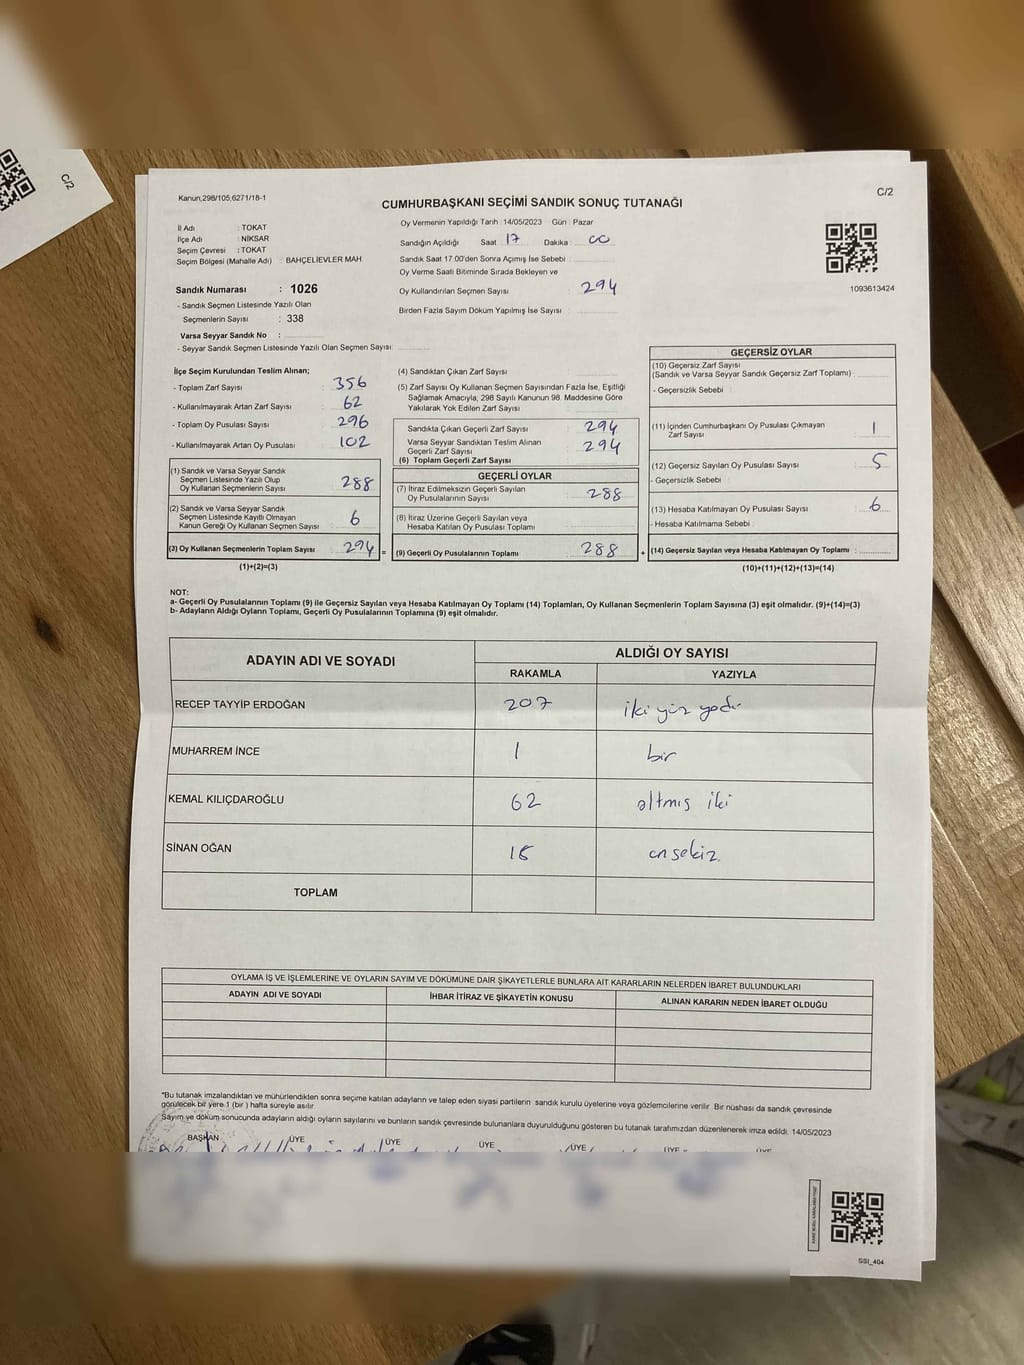 C/2
Kanun;298/105,6271/18-1
C/2
CUMHURBAŞKANI SEÇİMİ SANDIK SONUÇ TUTANAĞI
İl Adı : TOKAT
İlçe Adı : NİKSAR
Seçim Çevresi : TOKAT
Seçim Bölgesi (Mahalle Adı) : BAHÇELİEVLER MAH
Oy Vermenin Yapıldığı Tarih : 14/05/2023 Gün : Pazar
Sandığın Açıldığı Saat : 17 Dakika : 00
Sandık Saat 17:00'den Sonra Açımış İse Sebebi :
Oy Verme Saati Bitiminde Sırada Bekleyen ve
Oy Kullandırılan Seçmen Sayısı : 294
Birden Fazla Sayım Döküm Yapılmış İse Sayısı :
1093613424
Sandık Numarası : 1026
- Sandık Seçmen Listesinde Yazılı Olan
Seçmenlerin Sayısı : 338
Varsa Seyyar Sandık No :
- Seyyar Sandık Seçmen Listesinde Yazılı Olan Seçmen Sayısı:
İlçe Seçim Kurulundan Teslim Alınan;
- Toplam Zarf Sayısı : 356
- Kullanılmayarak Artan Zarf Sayısı : 62
- Toplam Oy Pusulası Sayısı : 296
- Kullanılmayarak Artan Oy Pusulası : 102
(1) Sandık ve Varsa Seyyar Sandık
Seçmen Listesinde Yazılı Olup
Oy Kullanan Seçmenlerin Sayısı : 288
(2) Sandık ve Varsa Seyyar Sandık
Seçmen Listesinde Kayıtlı Olmayan
Kanun Gereği Oy Kullanan Seçmen Sayısı : 6
(3) Oy Kullanan Seçmenlerin Toplam Sayısı : 294 =
(1)+(2)=(3)
(4) Sandıktan Çıkan Zarf Sayısı :
(5) Zarf Sayısı Oy Kullanan Seçmen Sayısından Fazla İse, Eşitliği
Sağlamak Amacıyla; 298 Sayılı Kanunun 98. Maddesine Göre
Yakılarak Yok Edilen Zarf Sayısı :
Sandıkta Çıkan Geçerli Zarf Sayısı : 294
Varsa Seyyar Sandıktan Teslim Alınan
Geçerli Zarf Sayısı : 294
(6) Toplam Geçerli Zarf Sayısı :
GEÇERLİ OYLAR
(7) İtiraz Edilmeksizin Geçerli Sayılan
Oy Pusulalarının Sayısı : 288
(8) İtiraz Üzerine Geçerli Sayılan veya
Hesaba Katılan Oy Pusulası Toplamı :
(9) Geçerli Oy Pusulalarının Toplamı : 288 +
GEÇERSİZ OYLAR
(10) Geçersiz Zarf Sayısı
(Sandık ve Varsa Seyyar Sandık Geçersiz Zarf Toplamı) :
- Geçersizlik Sebebi :
(11) İçinden Cumhurbaşkanı Oy Pusulası Çıkmayan
Zarf Sayısı : 1
(12) Geçersiz Sayılan Oy Pusulası Sayısı : 5
- Geçersizlik Sebebi :
(13) Hesaba Katılmayan Oy Pusulası Sayısı : 6
- Hesaba Katılmama Sebebi :
(14) Geçersiz Sayılan veya Hesaba Katılmayan Oy Toplamı :
(10)+(11)+(12)+(13)=(14)
NOT:
a- Geçerli Oy Pusulalarının Toplamı (9) ile Geçersiz Sayılan veya Hesaba Katılmayan Oy Toplamı (14) Toplamları, Oy Kullanan Seçmenlerin Toplam Sayısına (3) eşit olmalıdır. (9)+(14)=(3)
b- Adayların Aldığı Oyların Toplamı, Geçerli Oy Pusulalarının Toplamına (9) eşit olmalıdır.
ADAYIN ADI VE SOYADI
ALDIĞI OY SAYISI
RAKAMLA YAZIYLA
RECEP TAYYİP ERDOĞAN 207 iki yüz yedi
MUHARREM İNCE 1 bir
KEMAL KILIÇDAROĞLU 62 altmış iki
SİNAN OĞAN 18 onsekiz
TOPLAM
OYLAMA İŞ VE İŞLEMLERİNE VE OYLARIN SAYIM VE DÖKÜMÜNE DAİR ŞİKAYETLERLE BUNLARA AİT KARARLARIN NELERDEN İBARET BULUNDUKLARI
ADAYIN ADI VE SOYADI İHBAR İTİRAZ VE ŞİKAYETİN KONUSU ALINAN KARARIN NEDEN İBARET OLDUĞU
*Bu tutanak imzalandıktan ve mühürlendikten sonra seçime katılan adayların ve talep eden siyasi partilerin sandık kurulu üyelerine veya gözlemcilerine verilir. Bir nüshası da sandık çevresinde
görülecek bir yere 1 (bir) hafta süreyle asılır.
Sayım ve döküm sonucunda adayların aldığı oyların sayılarını ve bunların sandık çevresinde bulunanlara duyurulduğunu gösteren bu tutanak tarafımızdan düzenlenerek imza edildi. 14/05/2023
BAŞKAN ÜYE ÜYE ÜYE ÜYE ÜYE ÜYE
SSI_404